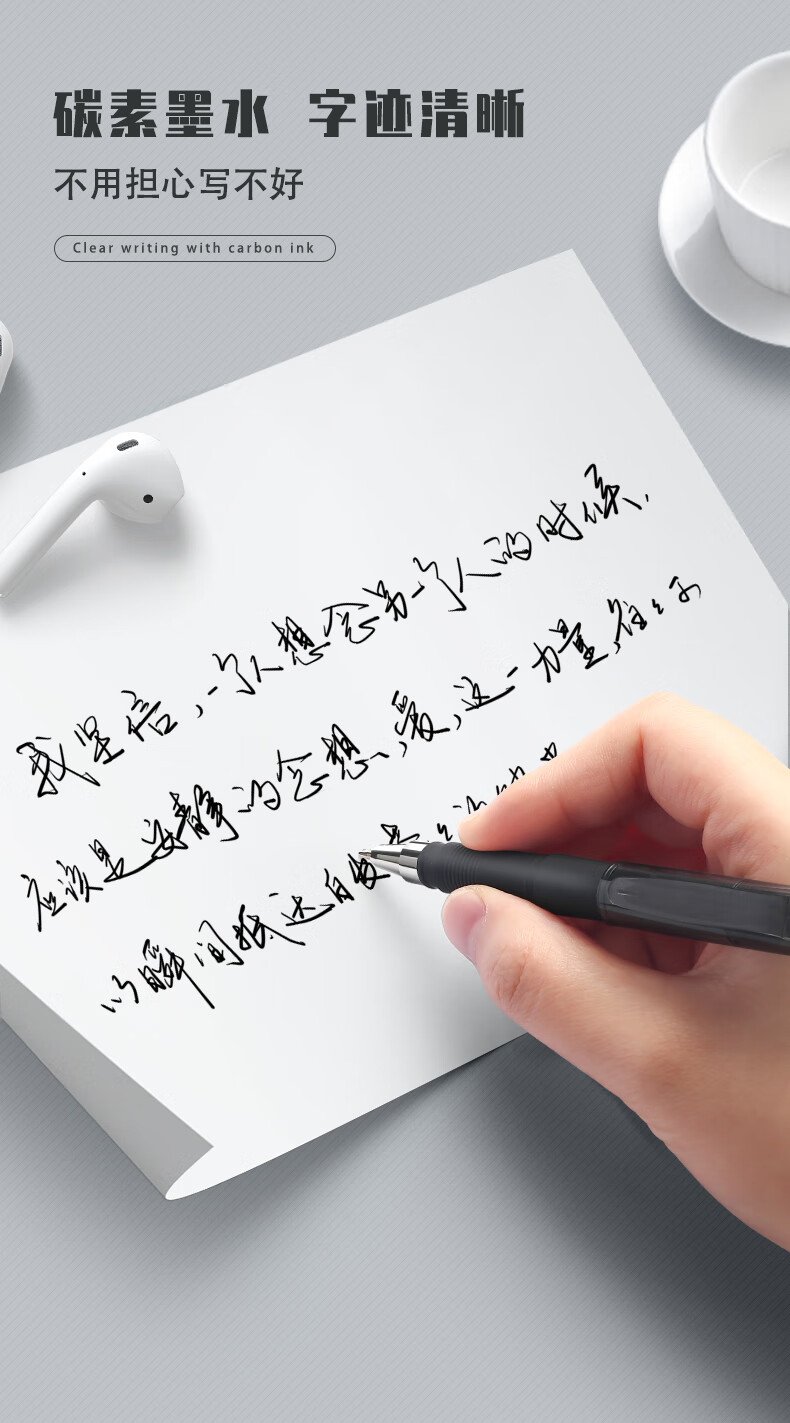 碳素墨水 字迹清晰
不用担心写不好
Clear writing with carbon ink
我坚信,一个人想念另一个人的时候,
应该是安静的念想、爱,这一力量,往往可
以瞬间抵达自